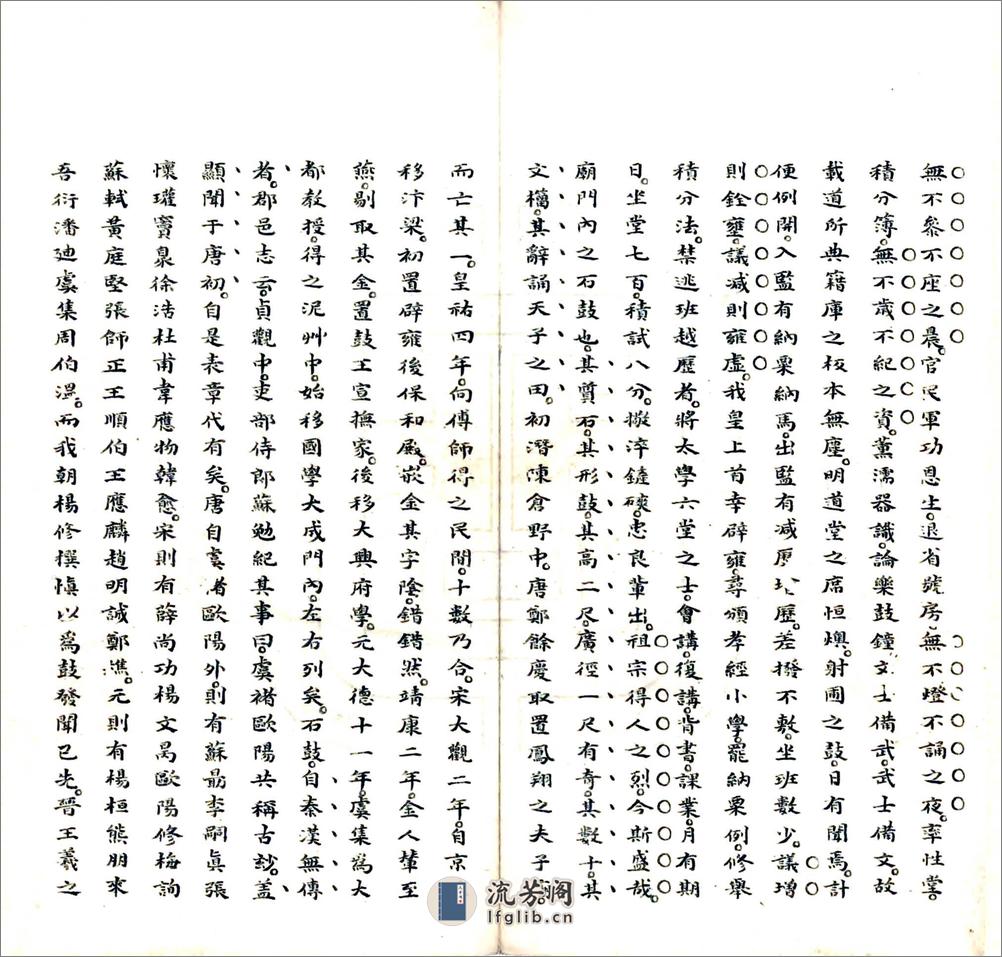 無不參不座之晨官民軍功恩生退省號房無不燈不誦之夜率性堂
積分簿無不歲不紀之資薰濡器識論樂鼓鐘文士備武武士備文故
載道所典籍庫之板本無塵明道堂之席恒燠射圃之鼓日有聞焉計
便例開入監有納粟納馬出監有减歷差撥不敷坐班數少議增
則銓壅議减則雍虛我皇上首幸辟雍尋頒孝經小學罷納粟例修舉
積分法禁逃班越歷者將太學六堂之士會講復講背書課業月有期
日坐堂七百積試八分擬淬鏟磢忠良輩出祖宗得人之烈今斯盛哉
廟門內之石鼓也其質石其形鼓其高二尺廣徑一尺有奇其數十其
文籀其辭誦天子之田初潛陳倉野中唐鄭餘慶取置鳳翔之夫子
而亡其一皇祐四年向傅師得之民間十數乃合宋大觀二年自京
移汴梁初置辟雍後保和殿嵌金其字陰錯錯然靖康二年金人輦至
燕剔取其金置鼓王宣撫家後移大興府學元大德十一年虞集為大
都教授得之泥艸中始移國學大成門內左右列矣石鼓自秦漢無傳
者郡邑志云貞觀中吏部侍郎蘇勉紀其事曰虞褚歐陽共稱古玅蓋
顯聞于唐初自是表章代有矣唐自虞褚歐陽外則有蘇勗李嗣真張
懷瓘竇臮徐浩杜甫韋應物韓愈宋則有薛尚功楊文昺歐陽修梅詢
蘇軾黃庭堅張師正王順伯王應麟趙明誠鄭漁元則有楊桓熊朋來
吾衍潘廸虞集周伯溫而我朝楊修撰慎以為鼓發聞已先晉王羲之
流芳阁
lfglib.cn